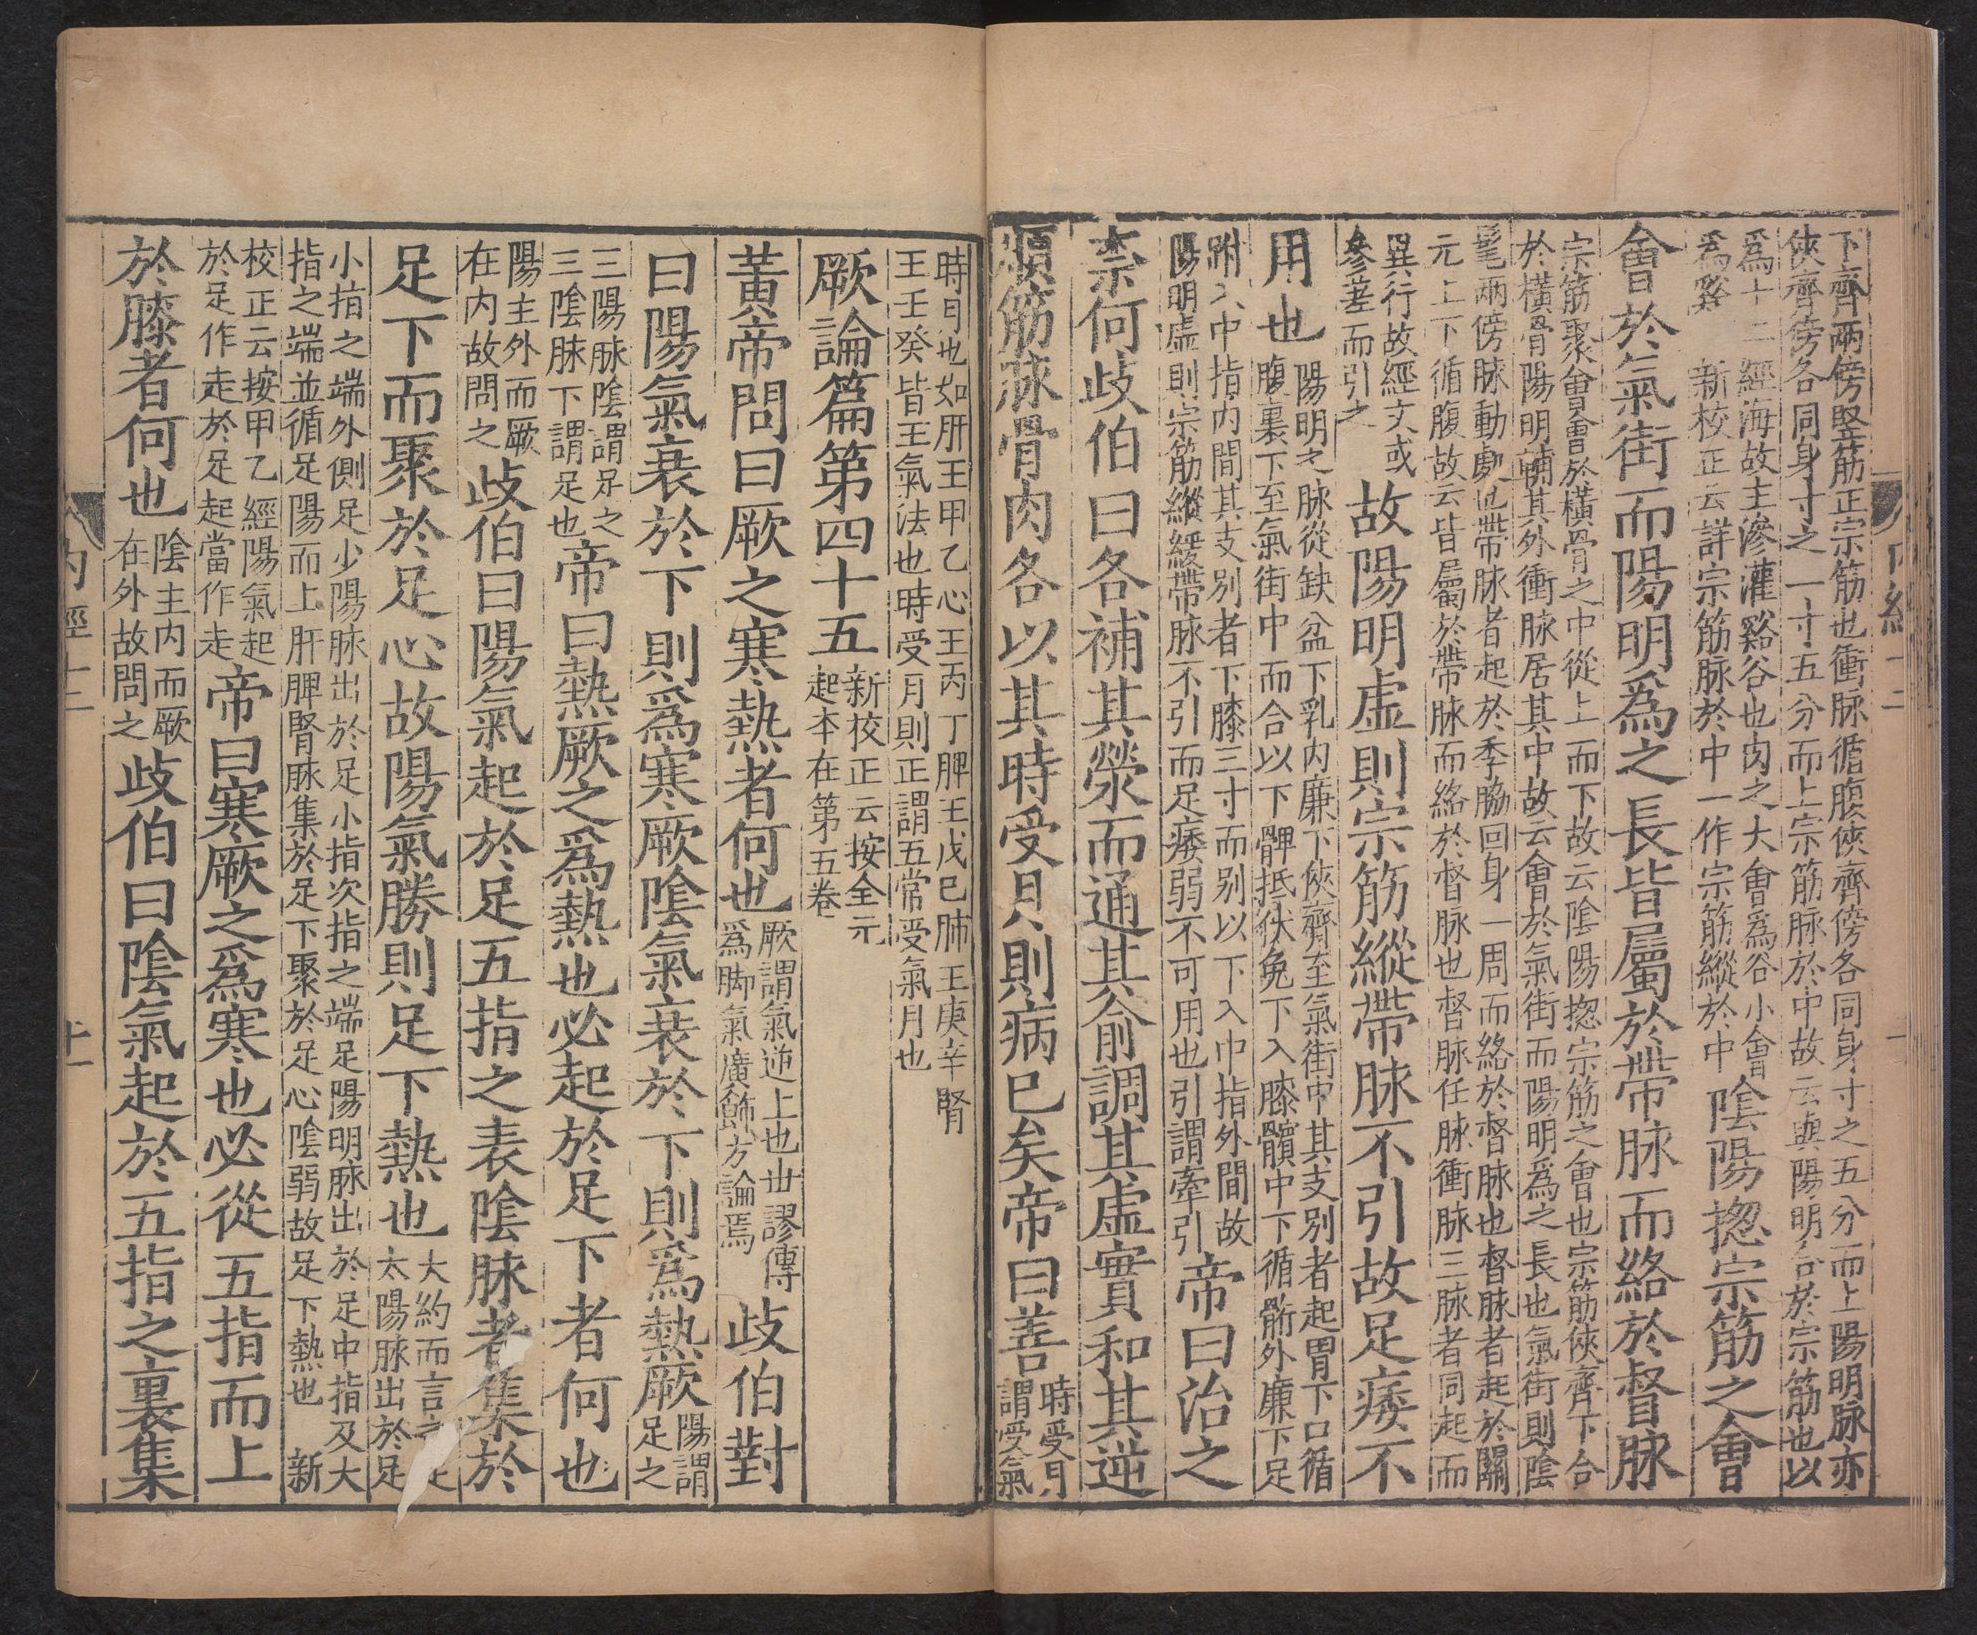 下齊兩傍竪筋正宗筋也衝脉循腹俠齊傍各同身寸之五分而上陽明脉亦
俠齊傍各同身寸之一寸五分而上宗筋脉於中故云與陽明合於宗筋也以
爲十二經海故主滲灌谿谷也肉之大會爲谷小會
爲谿 新校正云詳宗筋脉於中一作宗筋縱於中
陰陽揔宗筋之會
會於氣街而陽明爲之長皆屬於帶脉而絡於督脉
宗筋聚會會於橫骨之中從上而下故云陰陽揔宗筋之會也宗筋俠齊下合
於橫骨陽明輔其外衝脉居其中故云會於氣街而陽明爲之長也氣街則陰
髦兩傍脉動處也帶脉者起於季脇回身一周而絡於督脉也督脉者起於關
元上下循腹故云皆屬於帶脉而絡於督脉也督脉任脉衝脉三脉者同起而
異行故經文或
參差而引之
故陽明虛則宗筋縱帶脉不引故足痿不
用也
陽明之脉從缺盆下乳内廉下俠齊至氣街中其支別者起胃下口循
腹裏下至氣街中而合以下髀抵伏兔下入膝髕中下循䯒外廉下足
跗入中指内間其支別者下膝三寸而别以下入中指外間故
陽明虛則宗筋縱緩帶脉不引而足痿弱不可用也引謂牽引
帝曰治之
柰何歧伯曰各補其滎而通其俞調其虛實和其逆
順筋脉骨肉各以其時受月則病已矣帝曰善
時受月
謂受氣
時月也如肝王甲乙心王丙丁脾王戊己肺王庚辛腎
王壬癸皆王氣法也時受月則正謂五常受氣月也
厥論篇第四十五
新校正云按全元
起本在第五卷
黃帝問曰厥之寒熱者何也
厥謂氣逆上也世謬傳
爲脚氣廣飾方論焉
歧伯對
曰陽氣衰於下則爲寒厥陰氣衰於下則爲熱厥
陽謂
足之
三陽脉陰謂足之
三陰脉下謂足也
帝曰熱厥之爲熱也必起於足下者何也
陽主外而厥
在内故問之
歧伯曰陽氣起於足五指之表陰脉者集於
足下而聚於足心故陽氣勝則足下熱也
大約而言之足
太陽脉出於足
小指之端外側足少陽脉出於足小指次指之端足陽明脉出於足中指及大
指之端並循足陽而上肝脾腎脉集於足下聚於足心陰弱故足下熱也 新
校正云按甲乙經陽氣起
於足作走於足起當作走
帝曰寒厥之爲寒也必從五指而上
於膝者何也
陰主内而厥
在外故問之
歧伯曰陰氣起於五指之裏集
内經十二
十一